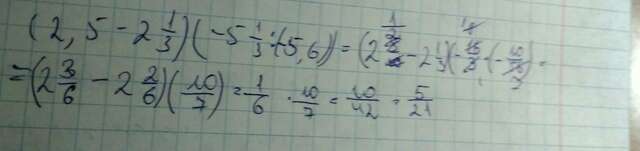 (2,5 - 2 1/3)(-5 1/3 : (-5,6)) = (2 1/2 - 2 1/3)(- 16/3 · (- 10/56)) =
= (2 3/6 - 2 2/6)(10/7) = 1/6 · 10/7 = 10/42 = 5/21